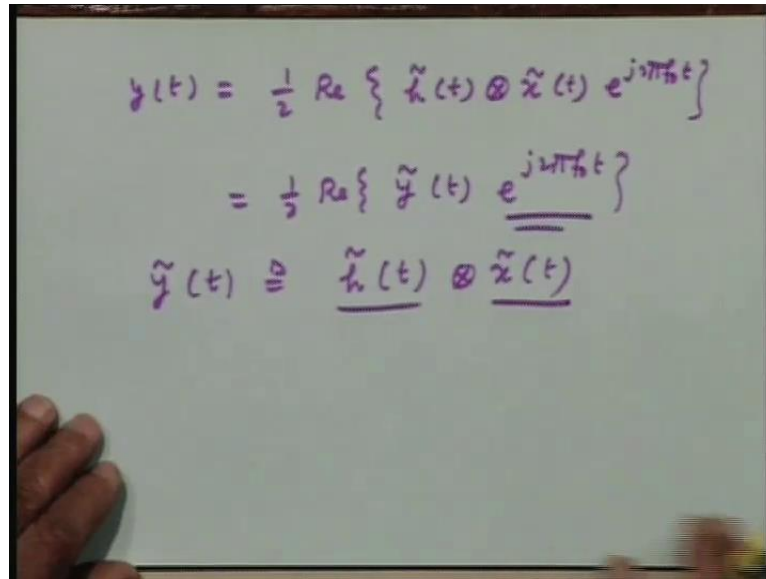 y(t) = 1/2 Re { h̃(t) ⊗ x̃(t) e^{j2πf₀t} }
= 1/2 Re { ỹ(t) e^{j2πf₀t} }
ỹ(t) ≜ h̃(t) ⊗ x̃(t)